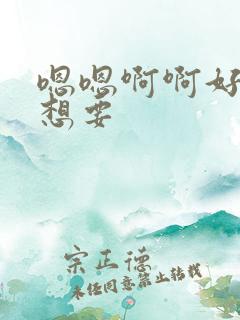 嗯嗯啊啊好
想要
宗正德
未经同意禁止转载